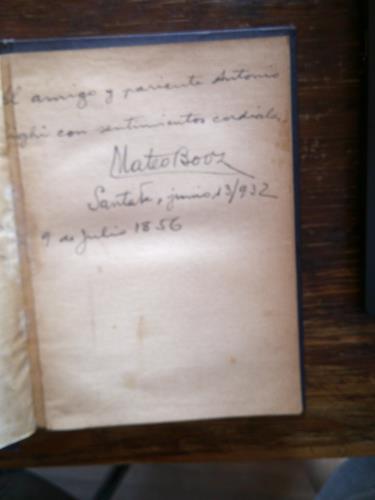 Al amigo y pariente Antonio
con sentimientos cordiales,
Mateo Booz
Santa Fe, junio 13/932
9 de Julio 1856